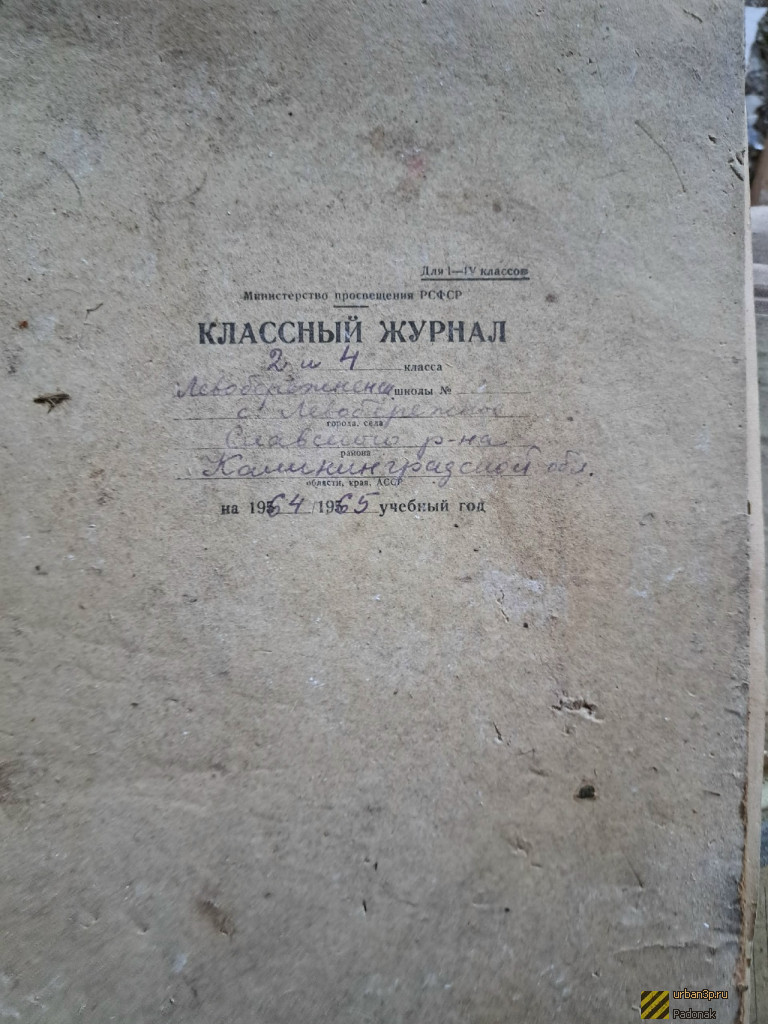 Для I—IV классов
Министерство просвещения РСФСР
КЛАССНЫЙ ЖУРНАЛ
2 и 4 класса
школы №
с. Левобережное
города, села
Славского р-на
района
Калининградской обл.
области, края, АССР
на 1964/1965 учебный год
urban3p.ru
Padonak